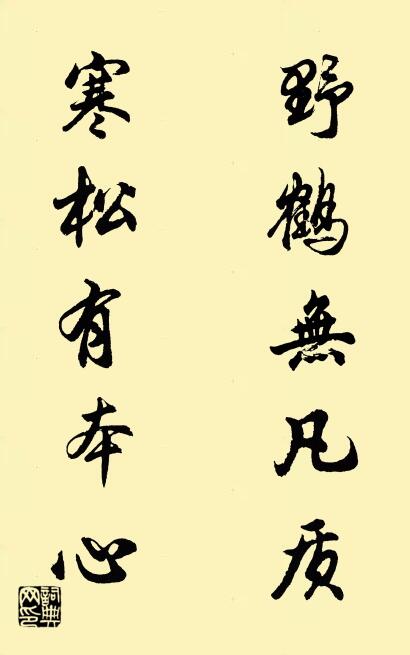 野鶴無凡质
寒松有本心
詞典网印